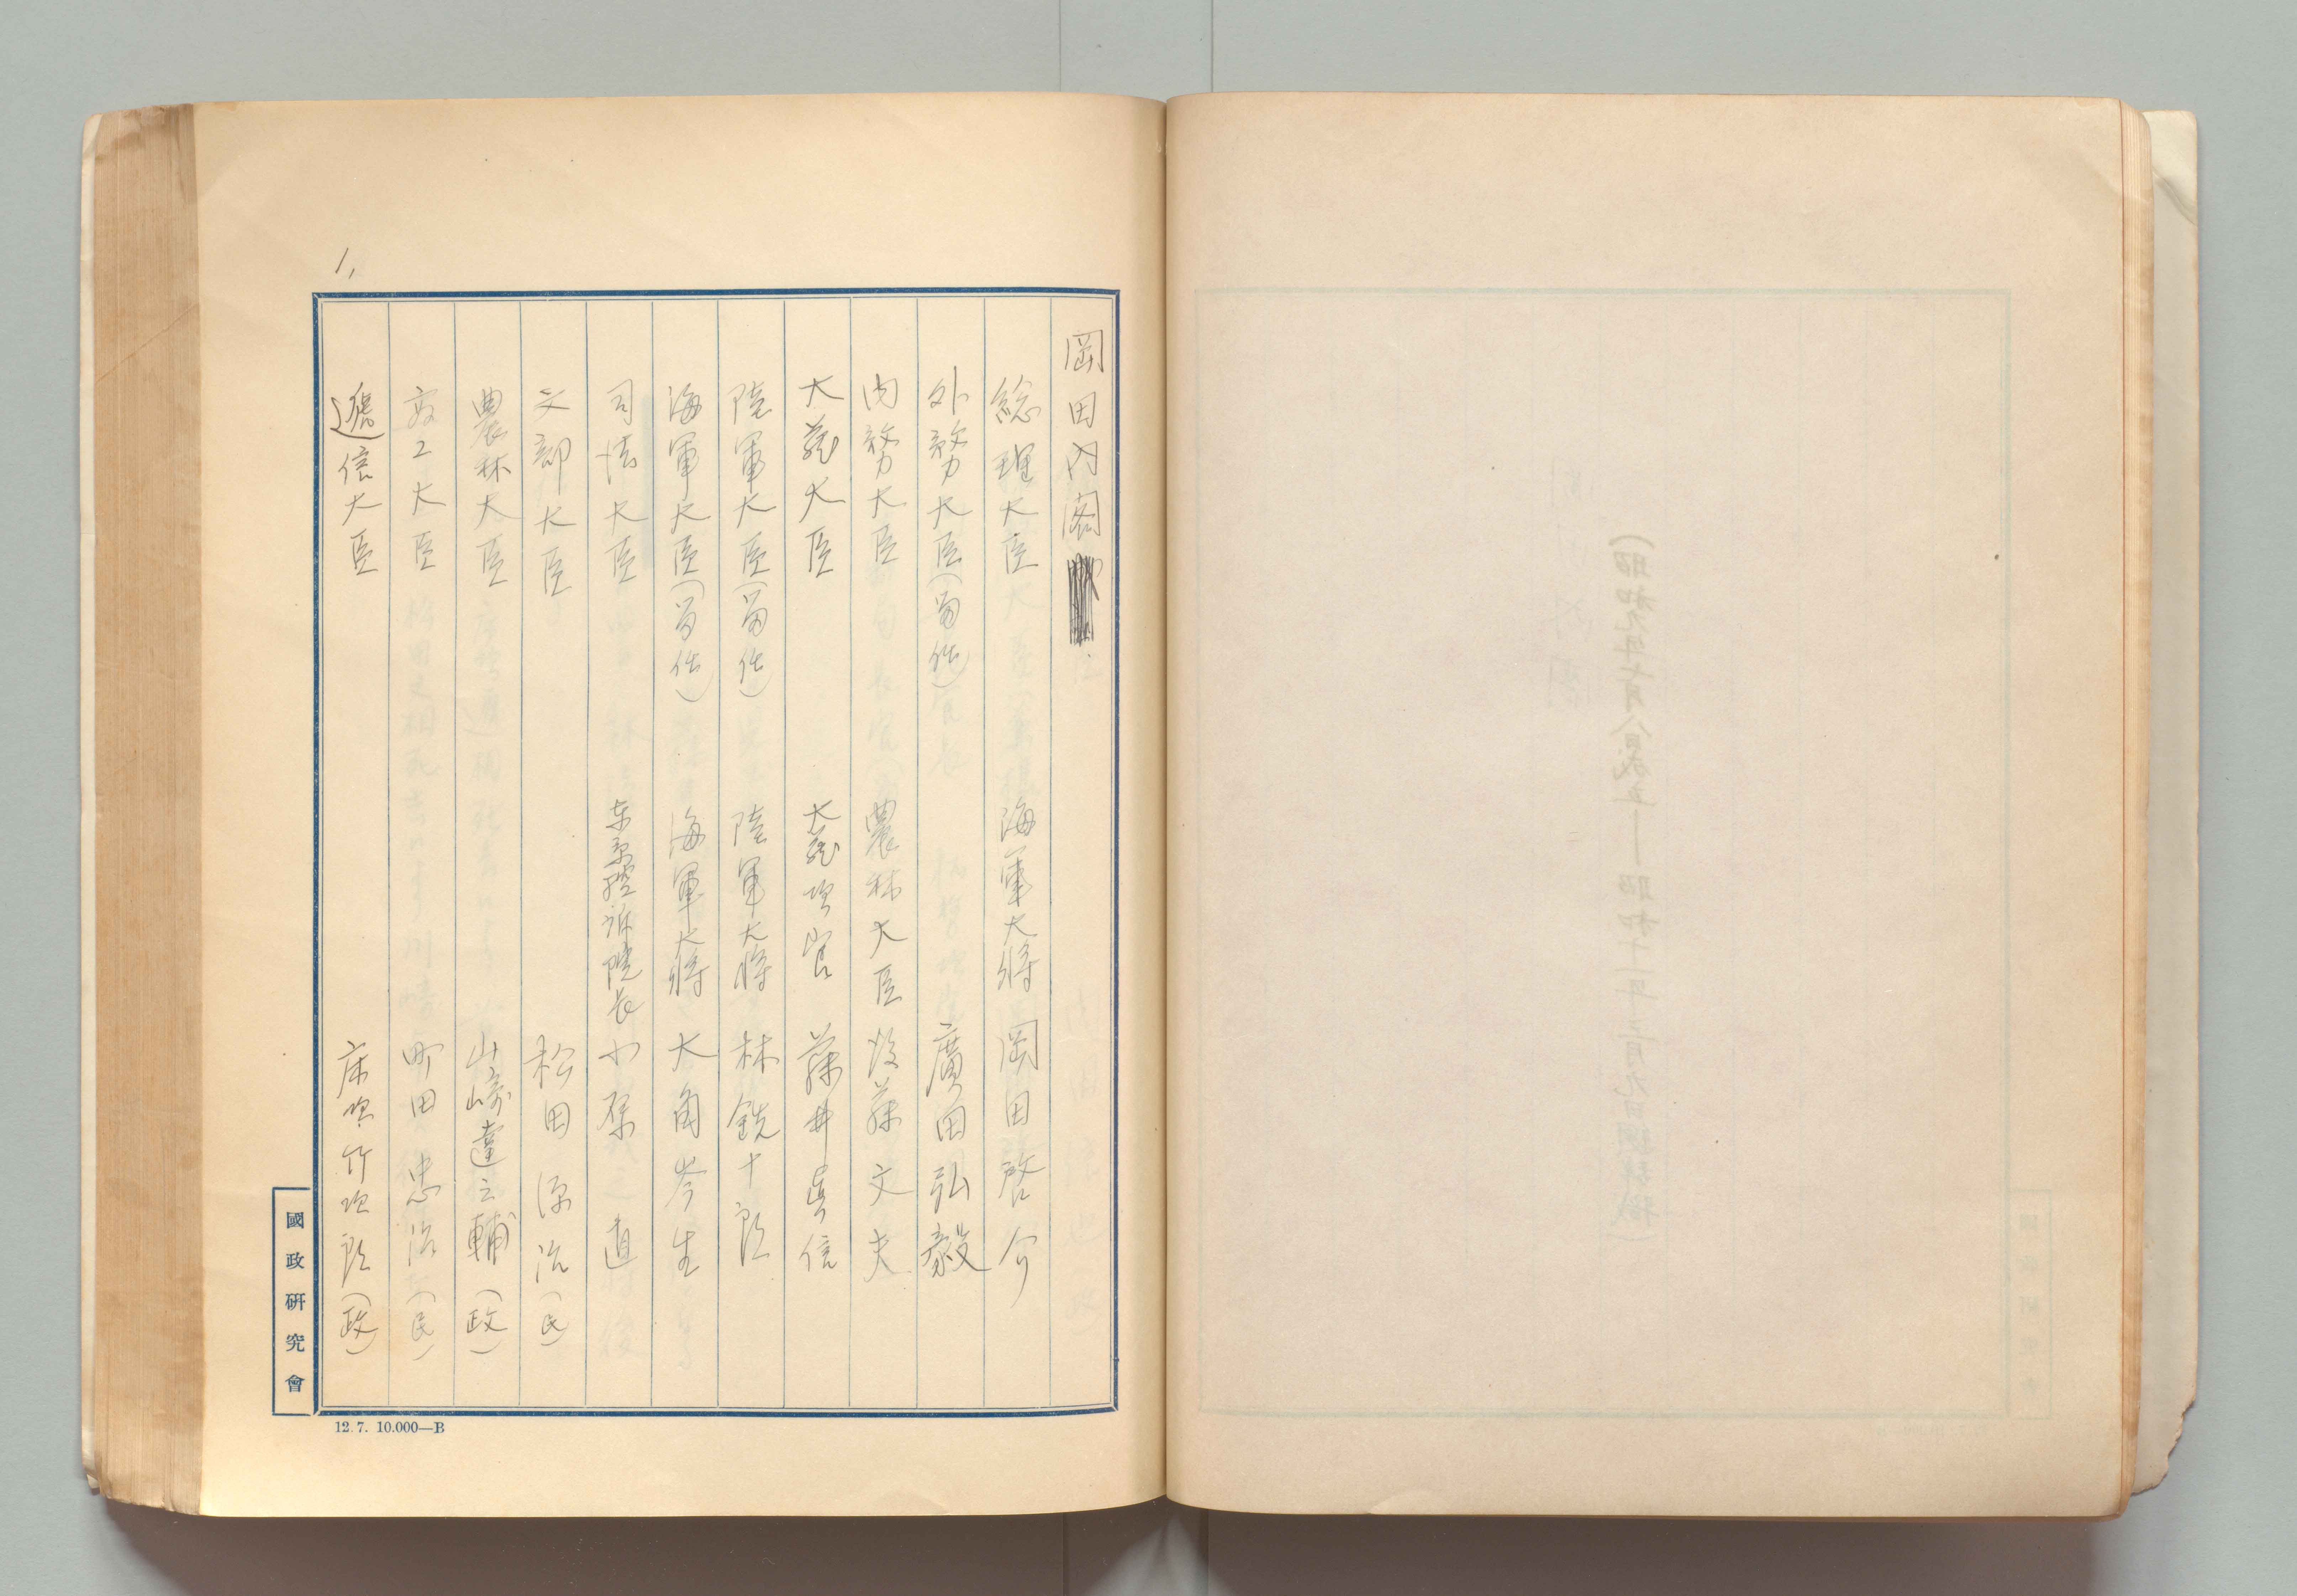 1,
岡田内閣
総理大臣 海軍大将 岡田啓介
外務大臣(留任) 廣田弘毅
内務大臣 農林大臣 後藤文夫
大蔵大臣 大蔵次官 藤井真信
陸軍大臣(留任) 陸軍大将 林銑十郎
海軍大臣(留任) 海軍大将 大角岑生
司法大臣 东京控訴院長 小原直
文部大臣 松田源治(民)
農林大臣 山崎達之輔(政)
商工大臣 町田忠治(民)
逓信大臣 床次竹次郎(政)
國政研究會
12.7. 10.000—B